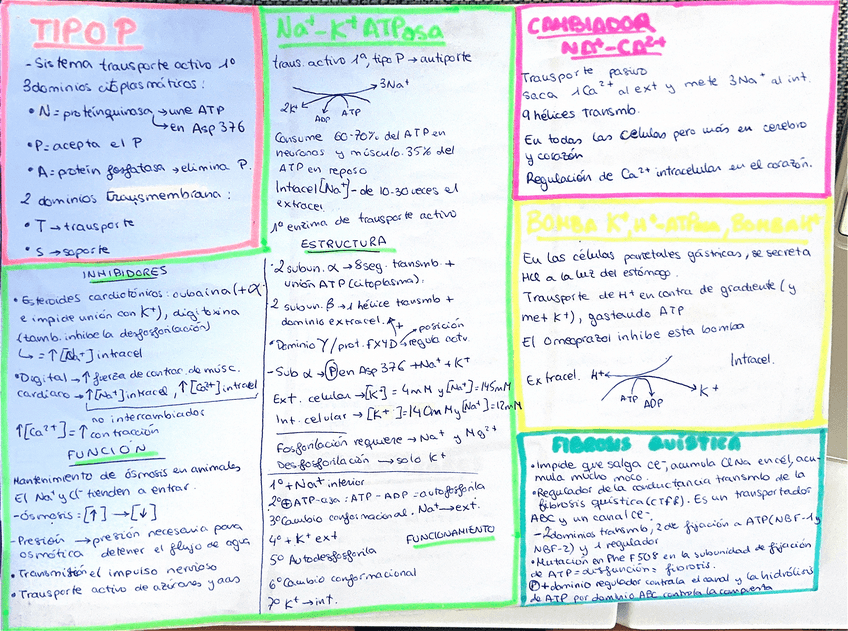 TIPO P
- Sistema transporte activo 1º
3 dominios citoplasmáticos:
• N = proteinquinasa → une ATP
→ en Asp 376
• P = acepta el P
• A = protein fosfatasa → elimina P.
2 dominios transmembrana:
• T → transporte
• S → soporte
Na+-K+ ATPasa
trans. activo 1º, tipo P → antiporte
3Na+
2K+
ADP ATP
Consume 60-70% del ATP en
neuronas y músculo. 35% del
ATP en reposo
Intracel [Na+] - de 10-30 veces el
extracel.
1º enzima de transporte activo
ESTRUCTURA
• 2 subun. α → 8 seg. transmb +
unión ATP (citoplasma).
2 subun. β → 1 hélice transmb +
dominio extracel.
• Dominio γ / prot. FXYD → regula actv.
+ posición
- Sub α → P en Asp 376 + Na+ + K+
Ext. celular → [K+] = 4mM y [Na+] = 145mM
Int. celular → [K+] = 140mM y [Na+] = 12mM
Fosforilación requiere → Na+ y Mg2+
Desfosforilación → solo K+
1º + Na+ interior
2º + ATP-asa: ATP - ADP = autofosforila
3º Cambio conformacional. Na+ → ext.
4º + K+ ext
FUNCIONAMIENTO
5º Autodesfosforila
6º Cambio conformacional
7º K+ → int.
INHIBIDORES
• Esteroides cardiotónicos: oubaína (+α
e impide unión con K+), digitoxina
(tamb. inhibe la desfosforilación)
↳ = ↑[Na+] intracel
• Digital → ↑ fuerza de contrac. de músc.
cardiaco → ↑[Na+] intracel, ↑[Ca2+] intracel
no intercambiados
↑[Ca2+] = ↑ contracción
FUNCIÓN
Mantenimiento de ósmosis en animales
El Na+ y Cl- tienden a entrar.
- ósmosis: [↑] → [↓]
- Presión osmótica → presión necesaria para
detener el flujo de agua
• Transmisión el impulso nervioso
• Transporte activo de azúcares y aas
CAMBIADOR
NA+-CA2+
Transporte pasivo
saca 1Ca2+ al ext y mete 3Na+ al int.
9 hélices transmb.
En todas las células pero más en cerebro
y corazón
Regulación de Ca2+ intracelular en el corazón.
BOMBA K+, H+-ATPasa, BOMBA H+
En las células parietales gástricas, se secreta
HCl a la luz del estómago.
Transporte de H+ en contra de gradiente (y
met K+), gastando ATP
El Omeprazol inhibe esta bomba
Intracel.
Extracel. H+
K+
ATP ADP
FIBROSIS QUÍSTICA
• Impide que salga Cl-, acumula ClNa en cél, acu-
mula mucho moco.
• Regulador de la conductancia transmb de la
fibrosis quística (CTFR). Es un transportador
ABC y un canal Cl-
- 2 dominios transmb, 2 de fijación a ATP (NBF-1 y
NBF-2) y 1 regulador
• Mutación en Phe F508 en la subunidad de fijación
de ATP = disfunción = fibrosis.
P + dominio regulador controla el canal y la hidrólisis
de ATP por dominio ABC controla la compuerta